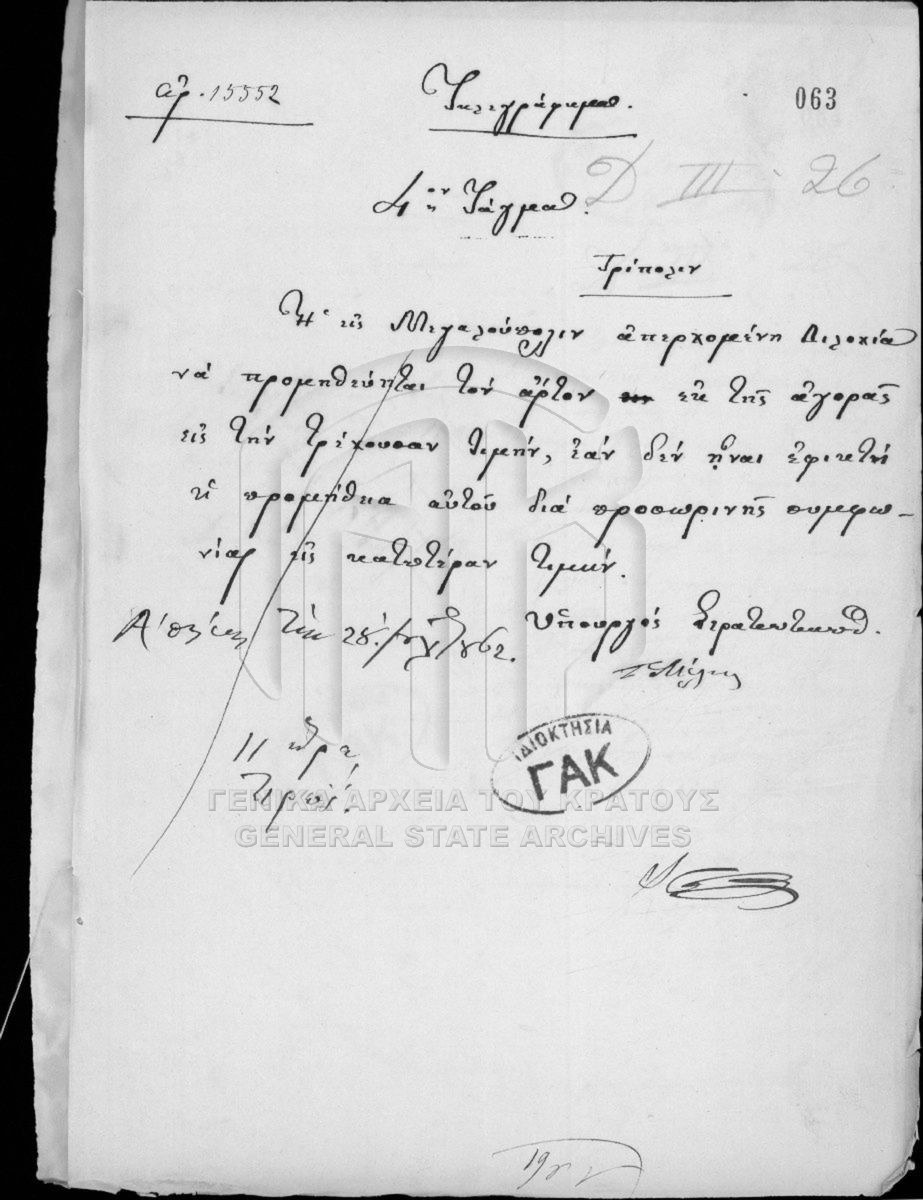 ἀρ. 15552
Τηλεγράφημα.
063
D III 26
4ον Τάγμα.
Τρίπολιν
Ἡ εἰς Μεγαλούπολιν ἀπερχομένη Διλοχία
νά προμηθεύηται τόν ἄρτον ἐκ τῆς ἀγορᾶς
εἰς τήν τρέχουσαν τιμήν, ἐάν δέν ἦναι ἐφικτή
ἡ προμήθεια αὐτοῦ διά προσωρινῆς συμφω-
νίας εἰς κατωτέραν τιμήν.
Ὑπουργός Στρατιωτικῶν.
Ἀθήνας τήν 28
11 ὥρα
ΙΔΙΟΚΤΗΣΙΑ
ΓΑΚ
ΓΕΝΙΚΑ ΑΡΧΕΙΑ ΤΟΥ ΚΡΑΤΟΥΣ
GENERAL STATE ARCHIVES